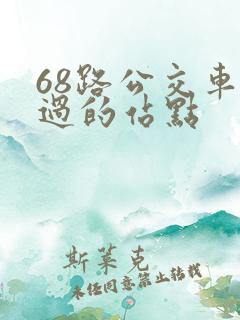 68路公交车
過的佔點
斯莱克
未经同意禁止转载